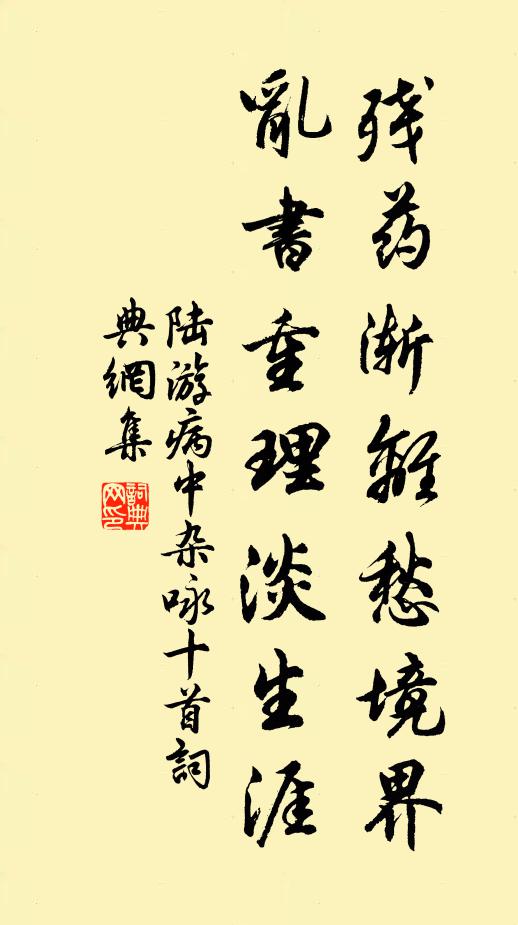 残药渐離愁境界
亂書重理淡生涯
陆游病中杂咏十首詞
典網集
詞典网印